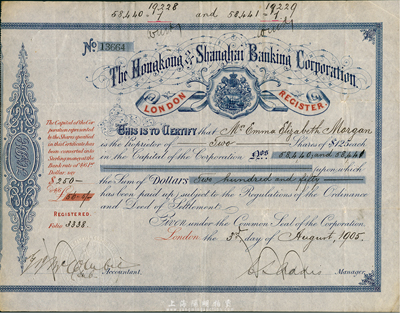 58,440 19228/1 and 58,441 19229/1
No 13664
The Hongkong & Shanghai Banking Corporation.
LONDON REGISTER.
This is to Certify that Mrs Emma Elizabeth Morgan
is the Proprietor of Two Shares of $125 each
in the Capital of the Corporation Nos 58,440 and 58,441
upon which
the Sum of Dollars Two hundred and fifty
has been paid up, subject to the Regulations of the Ordinance
and Deed of Settlement.
Given under the Common Seal of the Corporation
London the 3rd day of August, 1905.
Accountant.
Manager.
The Capital of the Corporation represented
by the Shares specified
in this Certificate has
been converted into
Sterling money at the
Bank rate of
Dollar
$250
REGISTERED.
Folio 3338.